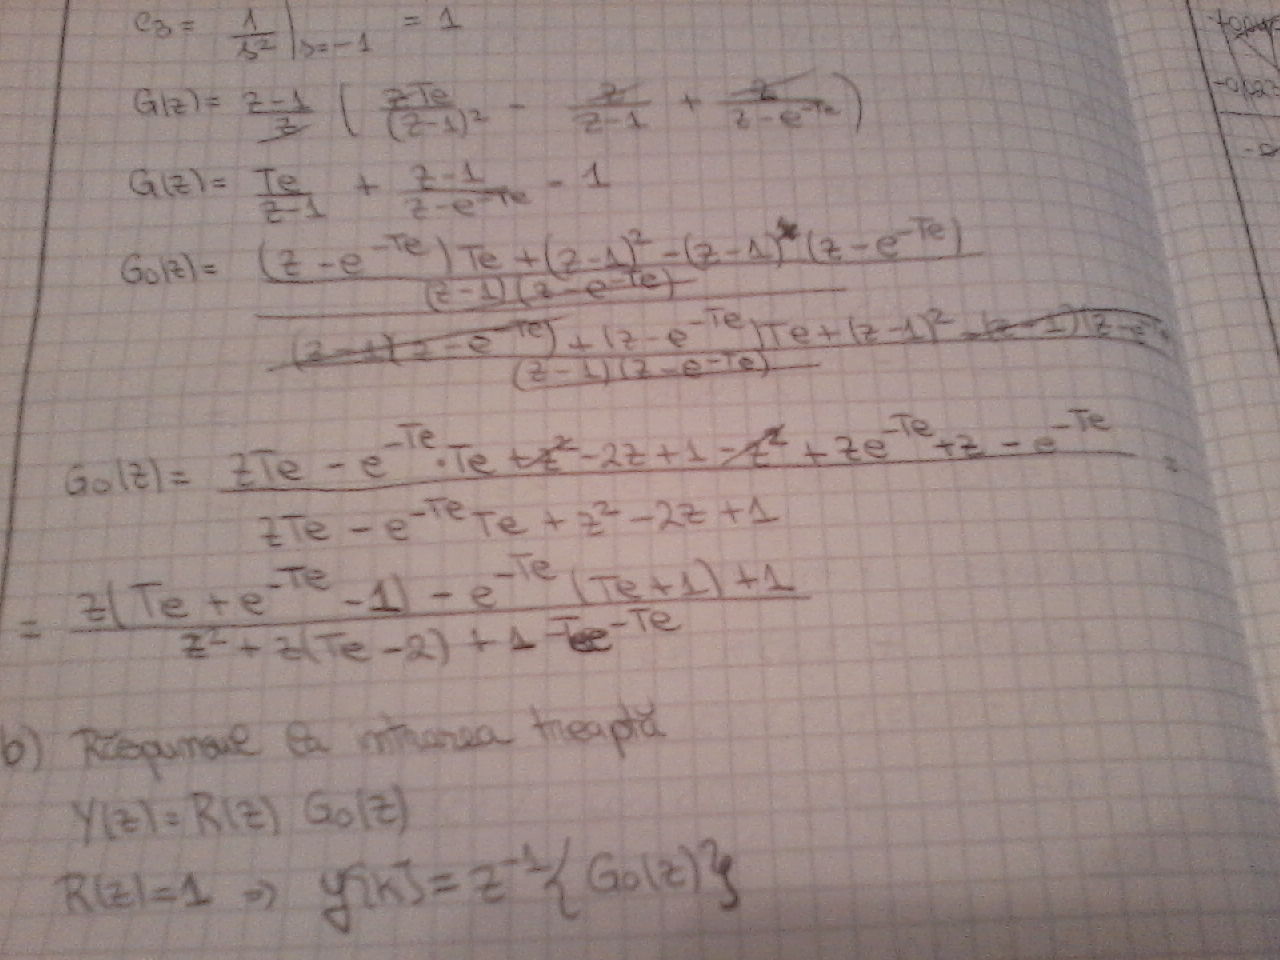 c3 = 1/s² |s=-1 = 1
G(z) = z-1/z ( zTe/(z-1)² - z/z-1 + z/z-e^-Te )
G(z) = Te/z-1 + z-1/z-e^-Te - 1
G0(z) = (z-e^-Te)Te + (z-1)² - (z-1)(z-e^-Te)
(z-1)(z-e^-Te)
(z-1)(z-e^-Te) + (z-e^-Te)Te + (z-1)² - (z-1)(z-e^-Te)
(z-1)(z-e^-Te)
G0(z) = zTe - e^-Te · Te + z² - 2z + 1 - z² + ze^-Te + z - e^-Te =
zTe - e^-Te Te + z² - 2z + 1
= z(Te + e^-Te - 1) - e^-Te (Te + 1) + 1
z² + z(Te - 2) + 1 - Te e^-Te
b) intrarea treaptă
Y(z) = R(z) G0(z)
R(z) = 1 ⇒ y[k] = z^-1 { G0(z) }